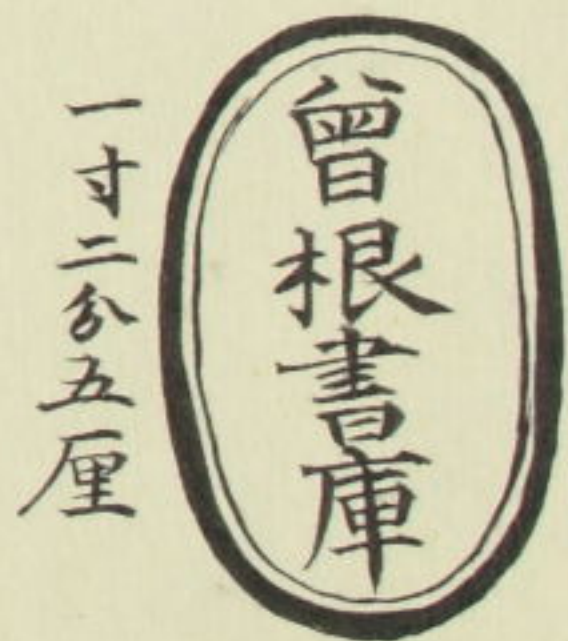 曾根書庫
一寸二分五厘